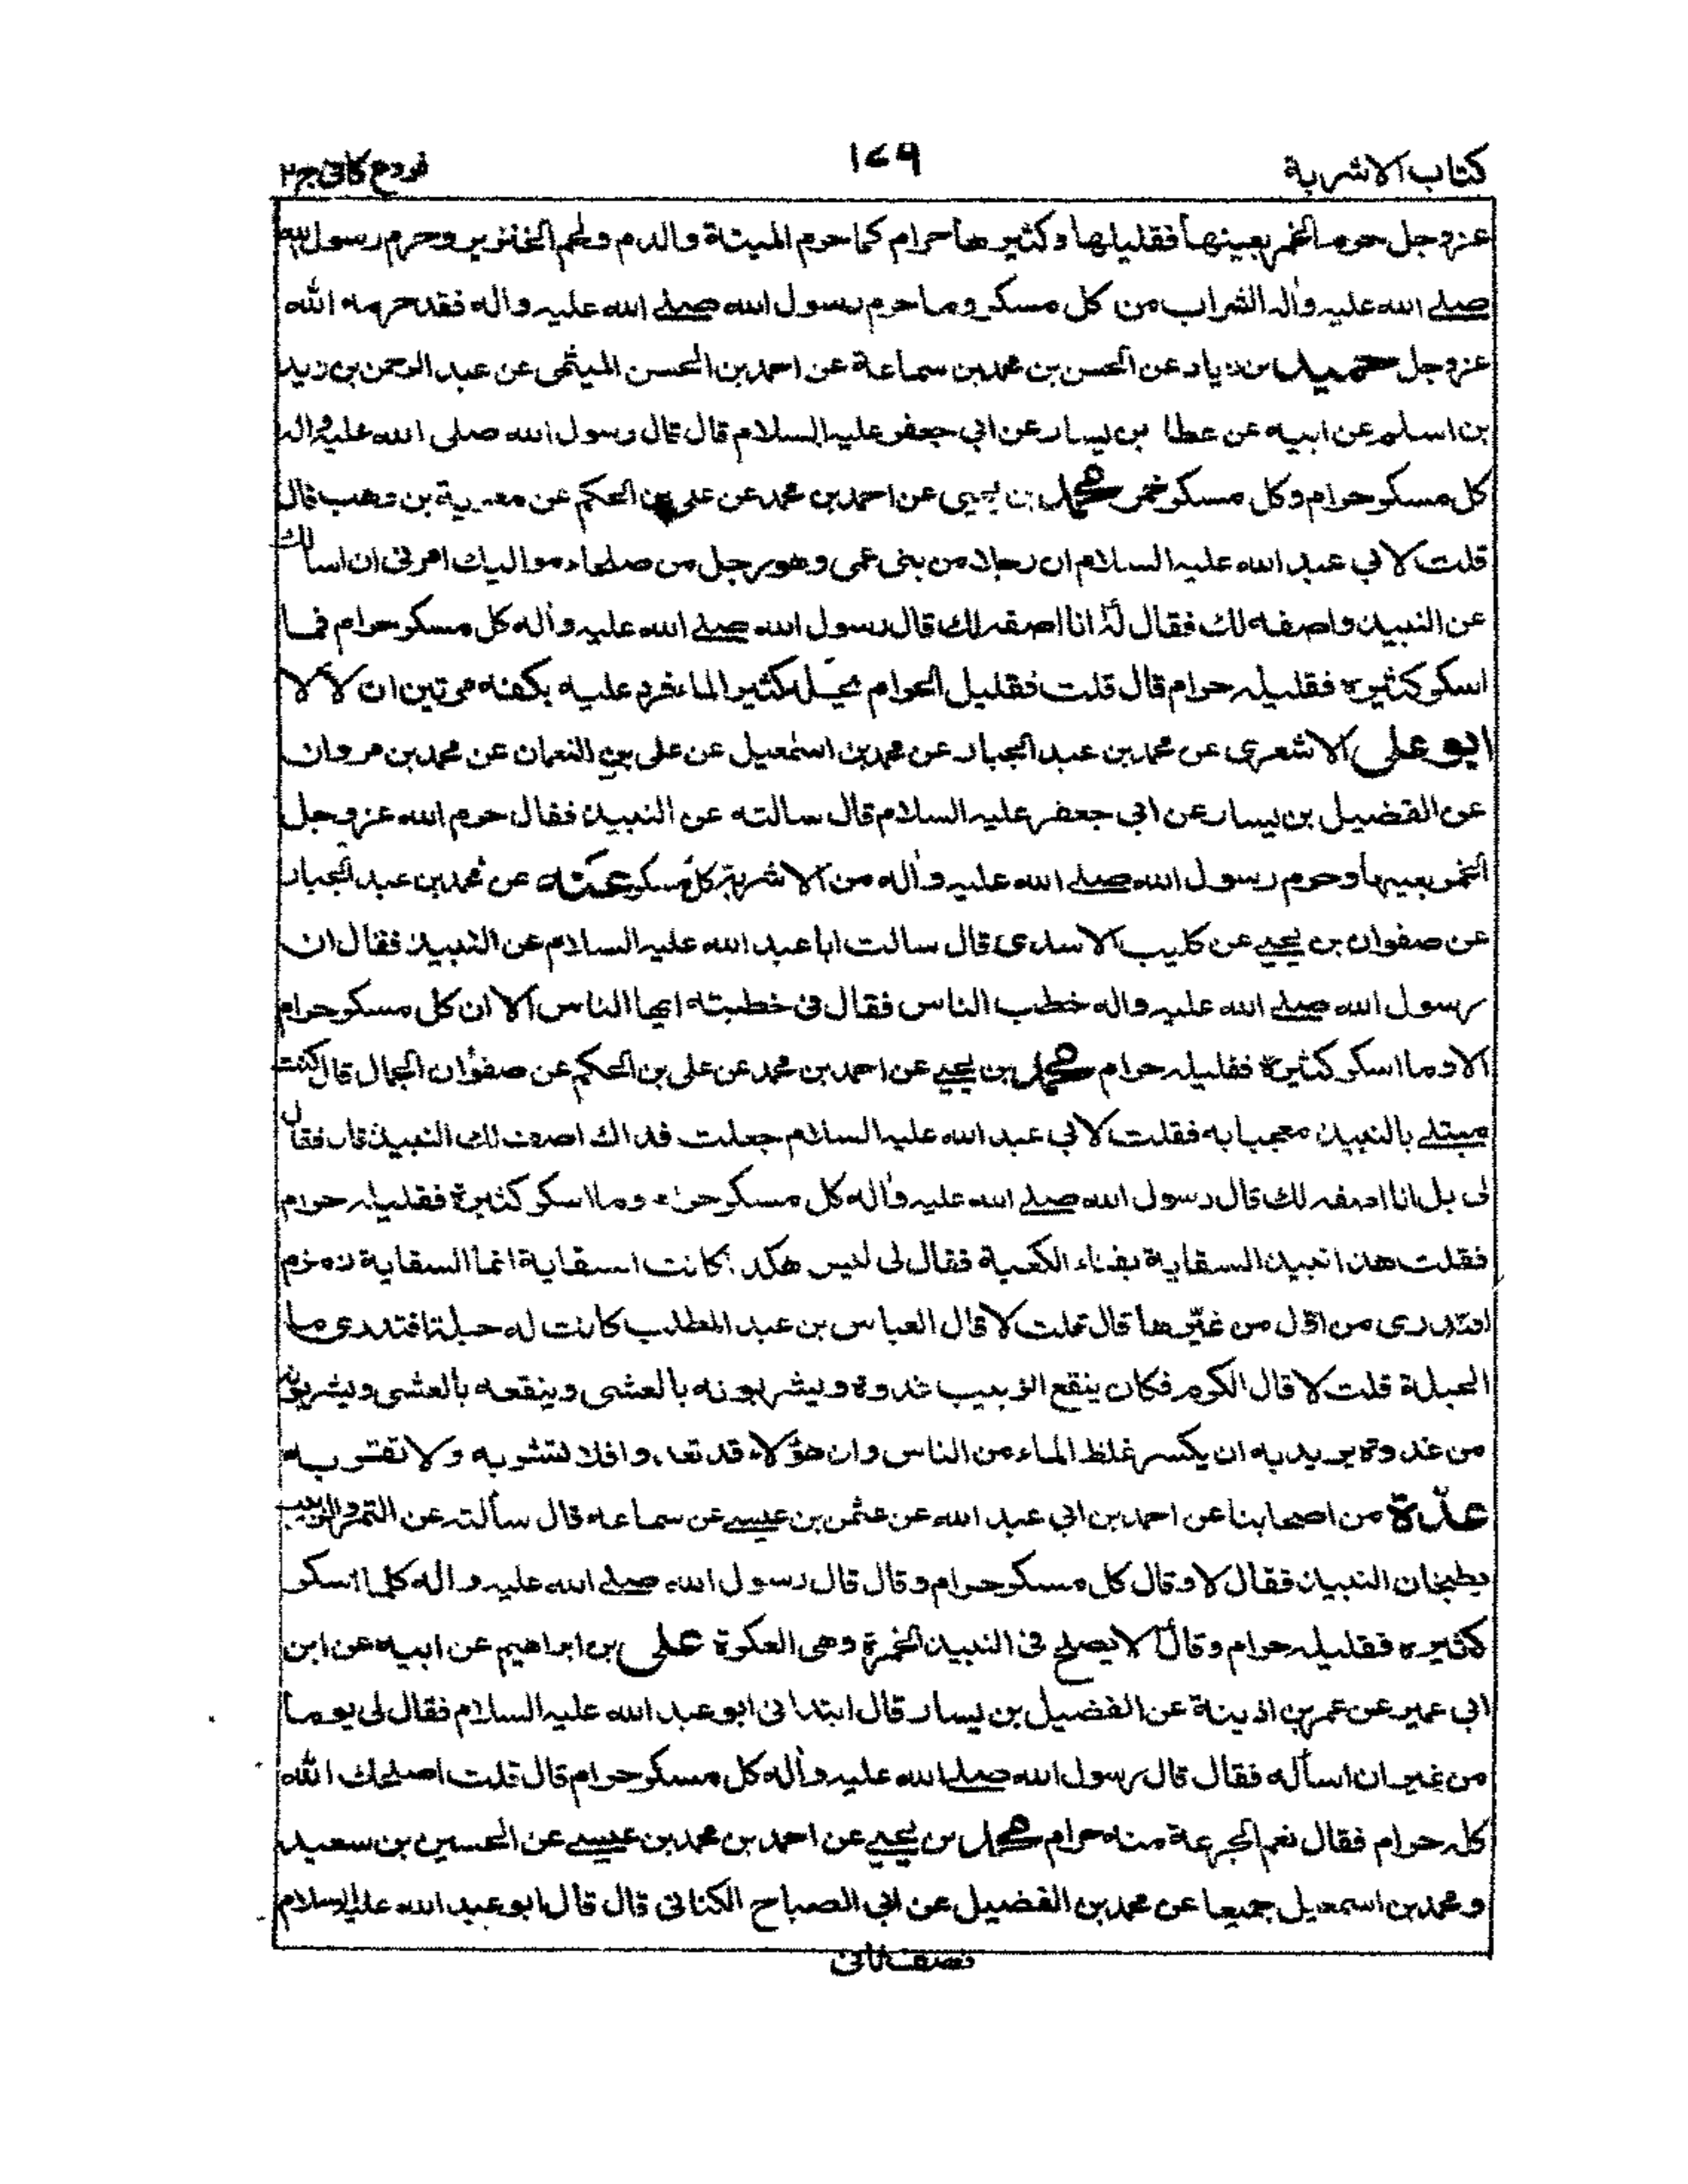 كتاب الاشربة
١٧٩
فروع كافى ج٢
عزوجل حرم الخمر بعينها فقليلها وكثيرها حرام كما حرم الميتة والدم ولحم الخنزير وحرم رسول الله
صلے الله عليه واله الشراب من كل مسكر وما حرم رسول الله صلے الله عليه واله فقد حرمه الله
عزوجل حميد بن زياد عن الحسن بن محمد بن سماعة عن احمد بن الحسن الميثمى عن عبد الرحمن بن زيد
بن اسلم عن ابيه عن عطا بن يسار عن ابي جعفر عليه السلام قال قال رسول الله صلى الله عليه واله
كل مسكر حرام وكل مسكر خمر محمد بن يحيى عن احمد بن محمد عن على بن الحكم عن معوية بن وهب قال
قلت لابي عبد الله عليه السلام ان رجلا من بنى عمى وهو رجل من صلحاء مواليك امرنى ان اسالك
عن النبيذ واصفه لك فقال له انا اصفه لك قال رسول الله صلے الله عليه واله كل مسكر حرام فما
اسكر كثيره فقليله حرام قال قلت فقليل الحرام يحله كثير الماء فرد عليه بكفه مرتين ان لا لا
ابو على الاشعرى عن محمد بن عبد الجبار عن محمد بن اسمعيل عن على بن النعمان عن محمد بن مروان
عن الفضيل بن يسار عن ابي جعفر عليه السلام قال سالته عن النبيذ فقال حرم الله عزوجل
الخمر بعينها وحرم رسول الله صلے الله عليه واله من الاشربة كل مسكر عنه عن محمد بن عبد الجبار
عن صفوان بن يحيے عن كليب الاسدى قال سالت ابا عبد الله عليه السلام عن النبيذ فقال ان
رسول الله صلے الله عليه واله خطب الناس فقال فى خطبته ايها الناس الا ان كل مسكر حرام
الا وما اسكر كثيرة فقليله حرام محمد بن يحيے عن احمد بن محمد عن على بن الحكم عن صفوان الجمال قال كنت
مبتلے بالنبيذ معجبا به فقلت لابي عبد الله عليه السلام جعلت فداك اصف لك النبيذ قال فقال
لى بل انا اصفه لك قال رسول الله صلے الله عليه واله كل مسكر حرام وما اسكر كثيرة فقليله حرام
فقلت هذا نبيذ السقاية بفناء الكعبة فقال لى ليس هكذا كانت السقاية انما السقاية زمزم
افتدرى من اول من غيرها قال قلت لا قال العباس بن عبد المطلب كانت له حبلة افتدرى ما
الحبلة قلت لا قال الكرم فكان ينقع الزبيب غدوة ويشربونه بالعشى وينقعه بالعشى ويشربونه
من غدوة يريد به ان يكسر غلظ الماء من الناس وان هؤلاء قد تعدوا فلا تشربه ولا تقربه
عدّة من اصحابنا عن احمد بن ابي عبد الله عن عثمن بن عيسے عن سماعه قال سألته عن التمر والزبيب
يطبخان النبيذ فقال لا وقال كل مسكر حرام وقال قال رسول الله صلے الله عليه واله كلما اسكر
كثيره فقليله حرام وقال لا يصلح فى النبيذ الخمرة وهى العكرة على بن ابراهيم عن ابيه عن ابن
ابي عمير عن عمر بن اذينة عن الفضيل بن يسار قال ابتدانى ابو عبد الله عليه السلام فقال لى يوما
من غير ان اسأله فقال قال رسول الله صلے الله عليه واله كل مسكر حرام قال قلت اصلحك الله
كله حرام فقال نعم الجرعة منه حرام محمد بن يحيے عن احمد بن محمد بن عيسے عن الحسين بن سعيد
و محمد بن اسمعيل جميعا عن محمد بن الفضيل عن ابي الصباح الكنانى قال قال ابو عبد الله عليه السلام
نصف ثانى